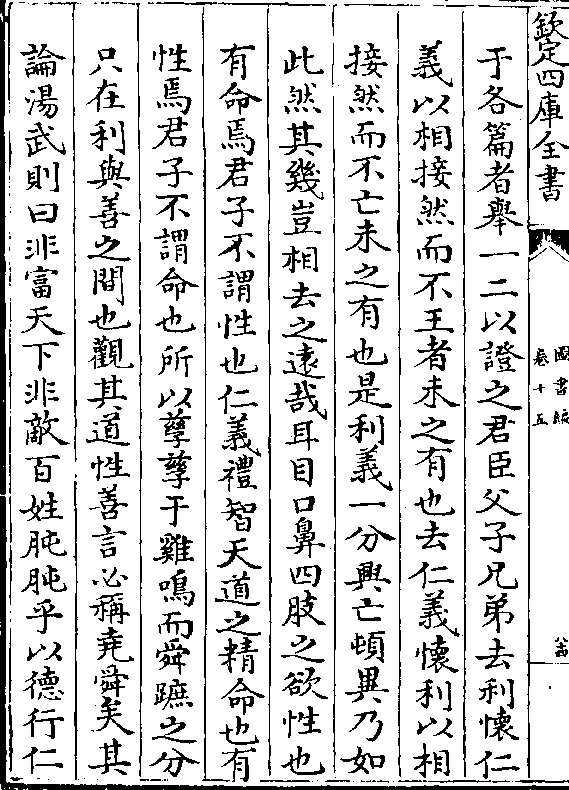 欽定四庫全書
圖書編
卷十五
于各篇者舉一二以證之君臣父子兄弟去利懷仁
義以相接然而不王者未之有也去仁義懷利以相
接然而不亡未之有也是利義一分興亡頓異乃如
此然其幾豈相去之遠哉耳目口鼻四肢之欲性也
有命焉君子不謂性也仁義禮智天道之精命也有
性焉君子不謂命也所以孳孳于雞鳴而舜蹠之分
只在利與善之間也觀其道性善言必稱堯舜矣其
論湯武則曰非富天下非敵百姓肫肫乎以德行仁